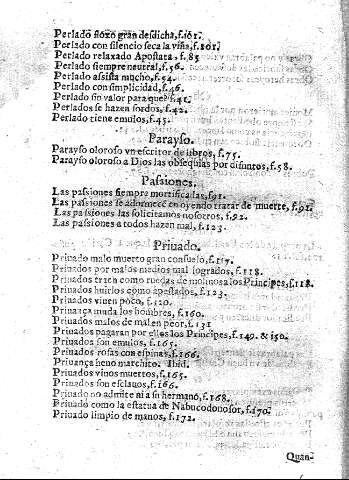 Perlado floxo gran desdicha, f.101.
Perlado con silencio seca la viña, f.101.
Perlado relaxado Apostata, f.85
Perlado siempre neutral, f.56.
Perlado assista mucho, f.54.
Perlado con simplicidad, f.46.
Perlado sin valor para que? f.41.
Perlados se hazen sordos, f.42.
Perlado tiene emulos, f.45.
Parayso.
Parayso oloroso vn escritor de libros, f.75.
Parayso oloroso a Dios las obsequias por difuntos, f.58.
Passiones.
Las passiones siempre mortificadas, f.91.
Las passiones se adormecē en oyendo tratar de muerte, f.91.
Las passiones las solicitamos nosotros, f.92.
Las passiones a todos hazen mal, f.123.
Priuado.
Priuado malo muerto gran consuelo, f.117.
Priuados por malos medios mal logrados, f.118.
Priuados traen como ruedas de molino a los Principes, f.118.
Priuados huirlos como apestados, f.123.
Priuados viuen poco, f.120.
Priuança muda los hombres, f.160.
Priuados malos de mal en peor, f.131
Priuados pagaran por ellos los Principes, f.149. & 150.
Priuados son emulos, f.165.
Priuados rosas con espinas, f.166.
Priuança heno marchito. Ibid.
Priuados viuos muertos, f.165.
Priuados son esclauos, f.166.
Priuado no admite ni a su hermano, f.168.
Priuado como la estatua de Nabucodonosor, f.170.
Priuado limpio de manos, f.172.
Quan-